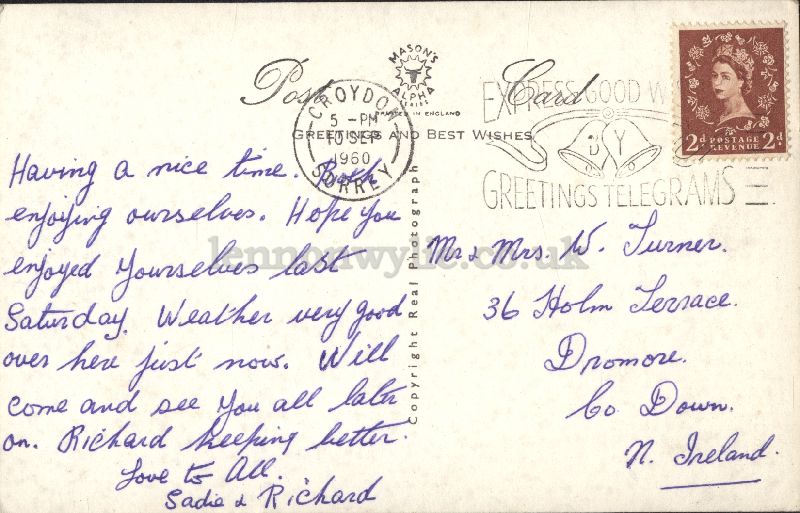 Post Card
MASON'S
ALPHA
SERIES
PRINTED IN ENGLAND
GREETINGS AND BEST WISHES
CROYDON
5 - PM
10 SEP
1960
SURREY
EXPRESS GOOD W
BY
GREETINGS TELEGRAMS
2d POSTAGE 2d
REVENUE
Having a nice time. Both
enjoying ourselves. Hope you
enjoyed yourselves last
Saturday. Weather very good
over here just now. Will
come and see you all later
on. Richard keeping better.
Love to All.
Sadie & Richard
Copyright Real Photograph
Mr & Mrs. W. Turner.
36 Holm Terrace.
Dromore.
Co Down.
N. Ireland.
lennonwylie.co.uk